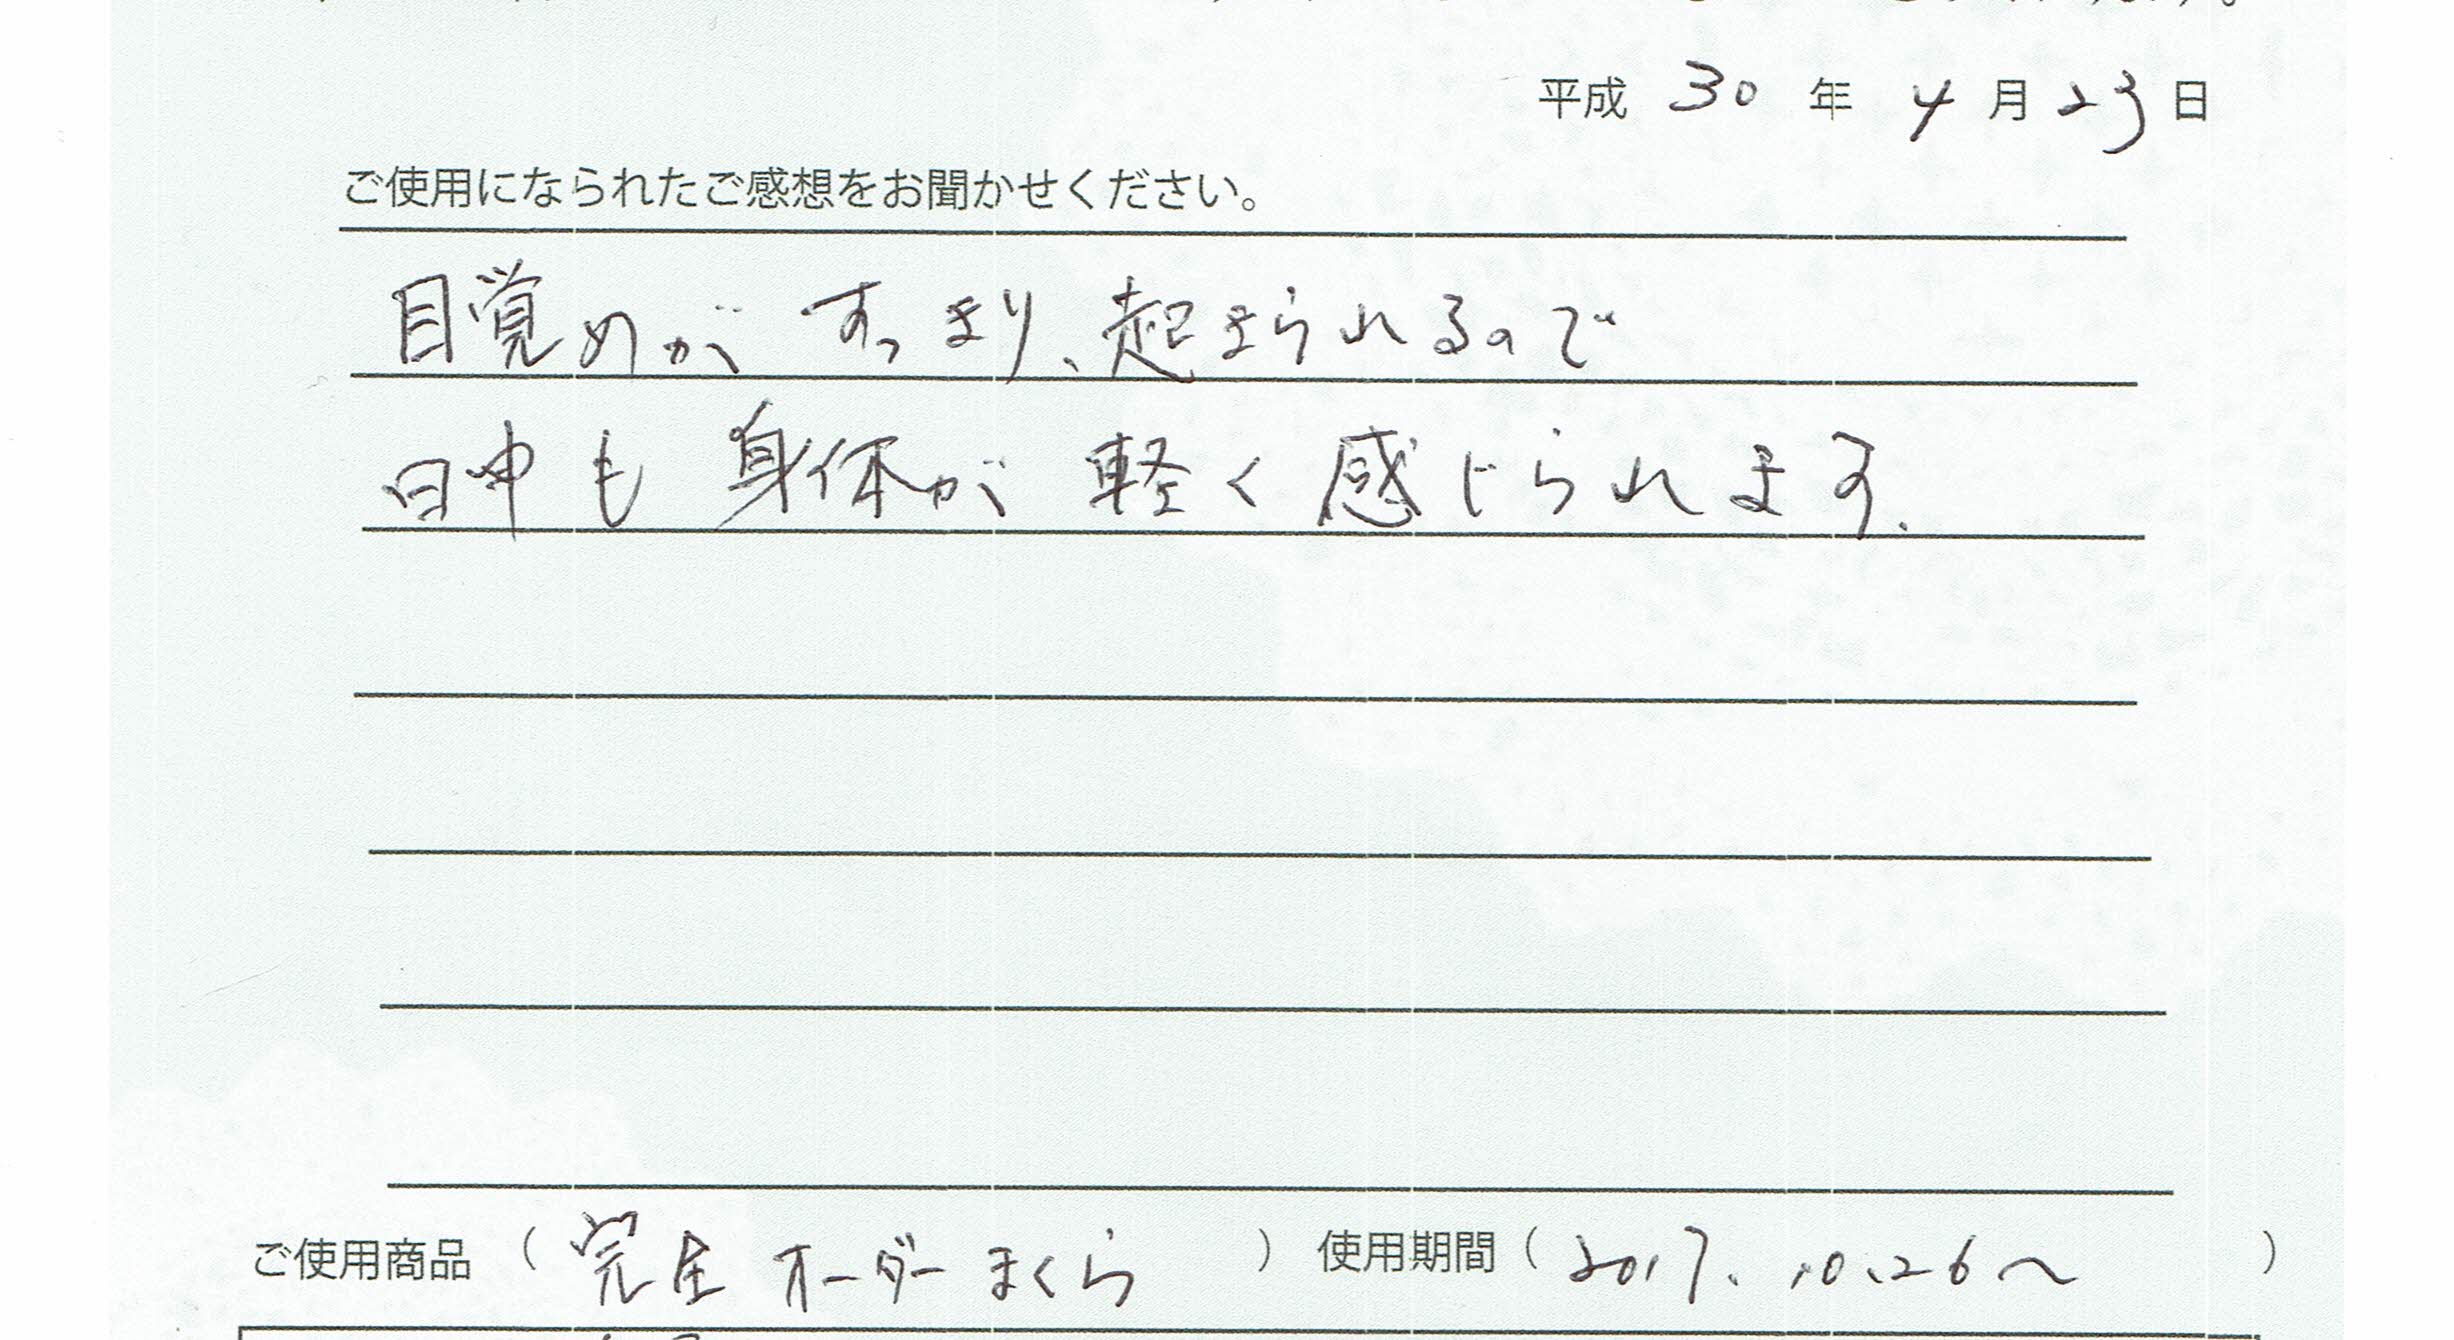 平成 30 年 4 月 23 日
ご使用になられたご感想をお聞かせください。
目覚めが すっきり、起きられるので
日中も 身体が 軽く 感じられます.
ご使用商品 ( 完全 オーダー まくら ) 使用期間 ( 2017. 10.26〜 )